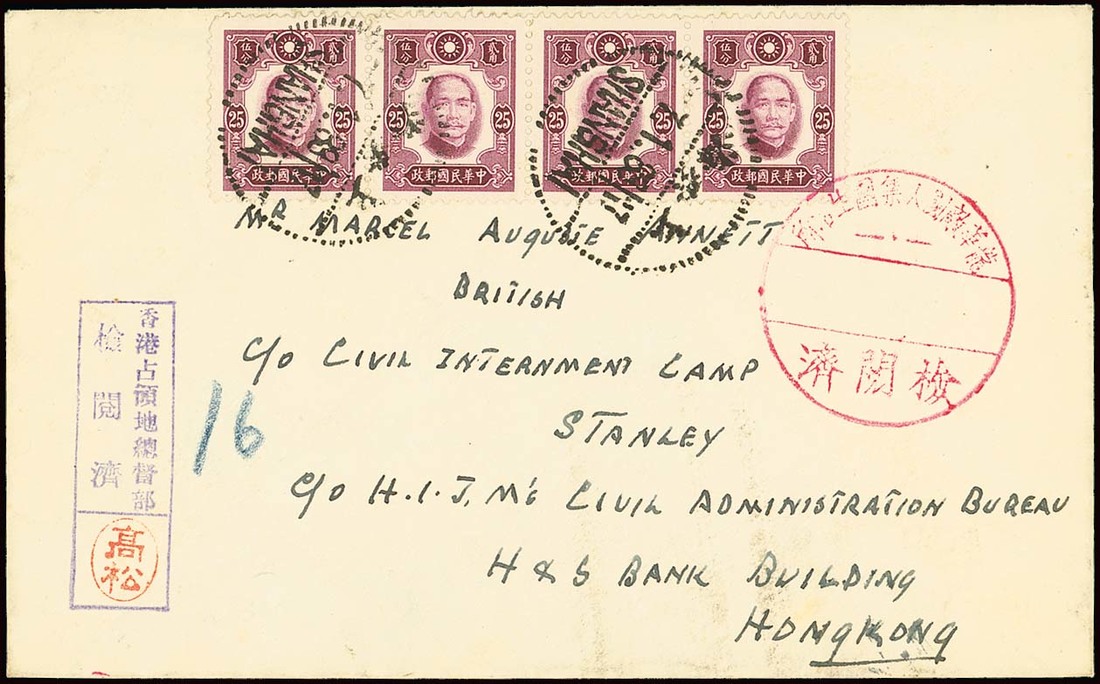 伍分 貳角
25 25
中華民國郵政
伍分 貳角
25 25
中華民國郵政
伍分 貳角
25 25
中華民國郵政
伍分 貳角
25 25
中華民國郵政
SHANGHAI
SHANGHAI
MR MARCEL AUGUSTE
BRITISH
C/O CIVIL INTERNMENT CAMP
STANLEY
C/O H.I.J.M's CIVIL ADMINISTRATION BUREAU
H & S BANK BUILDING
HONGKONG
16
香港占領地總督部
檢閱濟
高松
檢閱濟